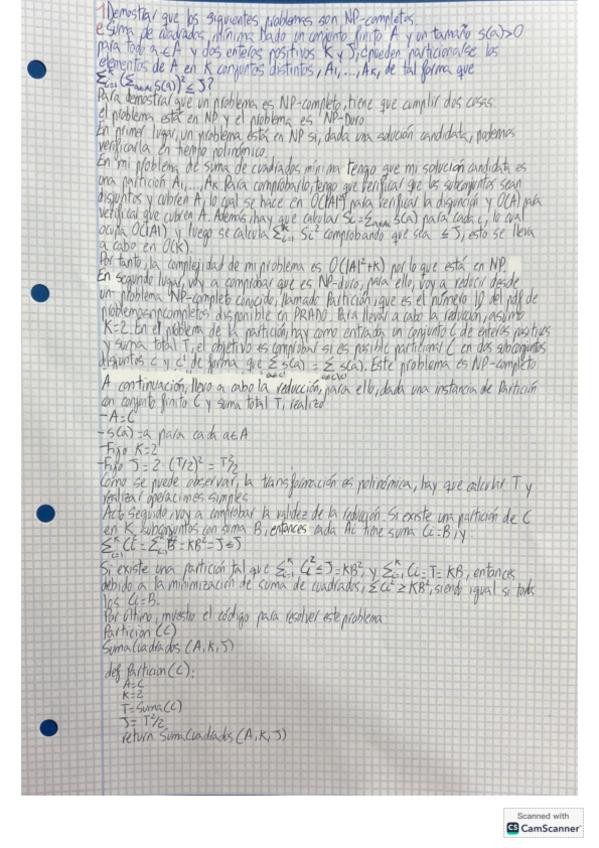 1 Demostrar que los siguientes problemas son NP-completos.
e Suma de cuadrados mínima. Dado un conjunto finito A y un tamaño s(a)>0
para todo a∈A y dos enteros positivos K y J, ¿pueden particionarse los
elementos de A en K conjuntos distintos, A1,..., AK, de tal forma que
Σ (Σ s(a))² ≤ J?
Para demostrar que un problema es NP-completo, tiene que cumplir dos cosas:
el problema está en NP y el problema es NP-Duro
En primer lugar, un problema está en NP si, dada una solución candidata, podemos
verificarla en tiempo polinómico.
En mi problema de suma de cuadrados mínima tengo que mi solución candidata es
una partición A1,..., AK. Para comprobarlo, tengo que verificar que los subconjuntos sean
disjuntos y cubren A, lo cual se hace en O(|A|²) para verificar la disyunción y O(A) para
verificar que cubren A. Además, hay que calcular Si=Σ s(a) para cada i, lo cual
ocupa O(|A|) y luego se calcula Σ Si² comprobando que sea ≤ J, esto se lleva
a cabo en O(K).
Por tanto, la complejidad de mi problema es O(|A|²+K) por lo que está en NP.
En segundo lugar, voy a comprobar que es NP-duro, para ello, voy a reducir desde
un problema NP-completo conocido, llamado Partición, que es el número 10 del pdf de
problemasnpcompletos disponible en PRADO. Para llevar a cabo la reducción, asumo
K=2. En el problema de la partición, hay como entrada un conjunto C de enteros positivos
y suma total T, el objetivo es comprobar si es posible particionar C en dos subconjuntos
disjuntos c y c' de forma que Σ s(a) = Σ s(a). Este problema es NP-completo
A continuación, llevo a cabo la reducción, para ello, dada una instancia de Partición
con conjunto finito C y suma total T, realizo
-A=C
-s(a)=a para cada a∈A
-Fijo K=2
-Fijo J=2·(T/2)²=T²/2
Como se puede observar, la transformación es polinómica, hay que calcular T y
realizar operaciones simples
Acto seguido, voy a comprobar la validez de la reducción. Si existe una partición de C
en K subconjuntos con suma B, entonces cada Ai tiene suma Ci=B, y
Σ Ci² = Σ B² = KB² = J ≤ J
Si existe una partición tal que Σ Ci² ≤ J = KB², y Σ Ci = T = KB, entonces
debido a la minimización de suma de cuadrados, ΣCi² ≥ KB², siendo igual si todos
los Ci=B.
Por último, muestro el código para resolver este problema
Particion (C)
SumaCuadrados (A,K,J)
def Particion(C):
A=C
K=2
T=Suma(C)
J=T²/2
return SumaCuadrados (A,K,J)
Scanned with
CS CamScanner